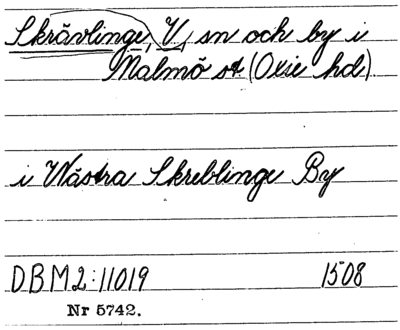 Skrävlinge, V, sn och by i
Malmö st (Oxie hd)
i Wästra Skreblinge By
DBM2:11019 1508
Nr 5742.